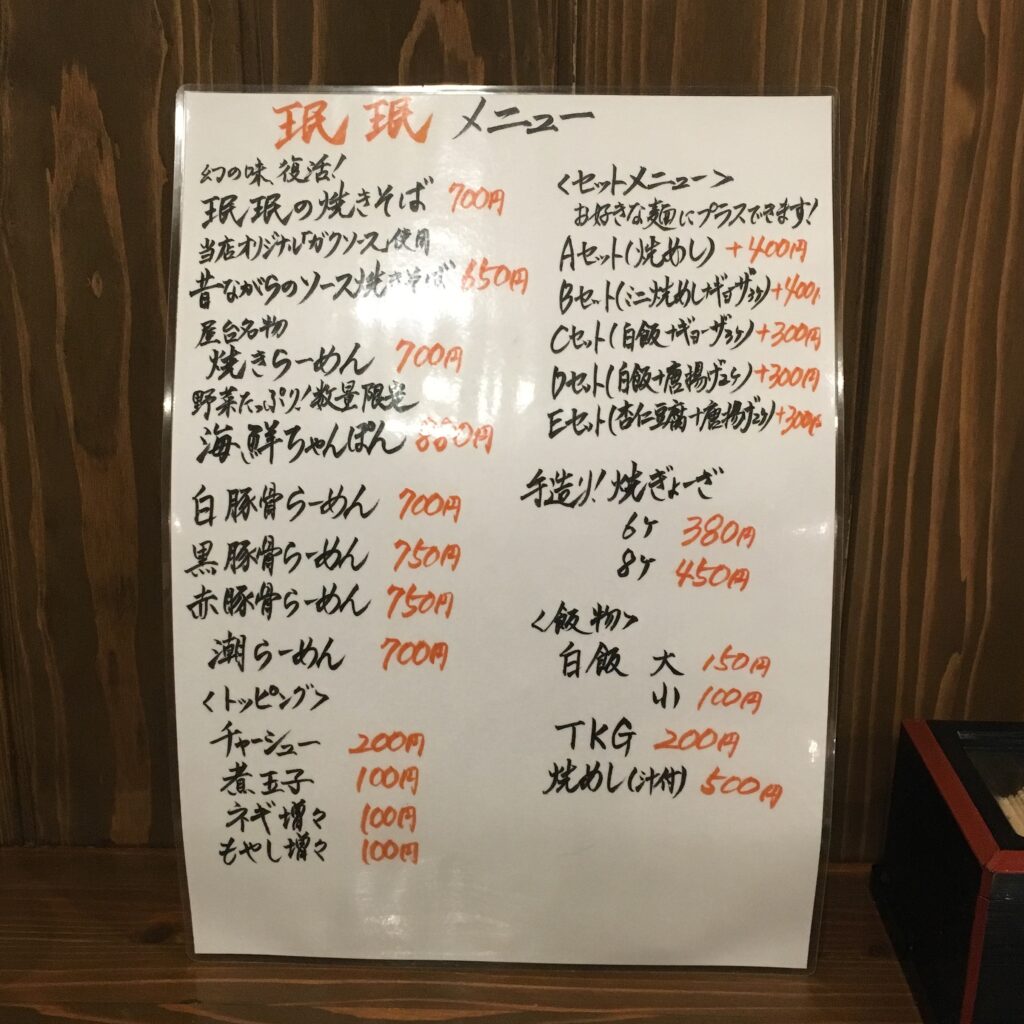 珉珉 メニュー
幻の味、復活!
珉珉の焼きそば 700円
当店オリジナル「ガクソース」使用
昔ながらのソース焼きそば 650円
屋台名物
焼きらーめん 700円
野菜たっぷり!数量限定
海鮮ちゃんぽん 880円
白豚骨らーめん 700円
黒豚骨らーめん 750円
赤豚骨らーめん 750円
潮らーめん 700円
<トッピング>
チャーシュー 200円
煮玉子 100円
ネギ増々 100円
もやし増々 100円
<セットメニュー>
お好きな麺にプラスできます!
Aセット(焼めし) +400円
Bセット(ミニ焼めし+ギョーザ3ケ) +400円
Cセット(白飯+ギョーザ3ケ) +300円
Dセット(白飯+唐揚げ2ケ) +300円
Eセット(杏仁豆腐+唐揚げ2ケ) +300円
手造り!焼ぎょーざ
6ケ 380円
8ケ 450円
<飯物>
白飯 大 150円
小 100円
TKG 200円
焼めし(汁付) 500円